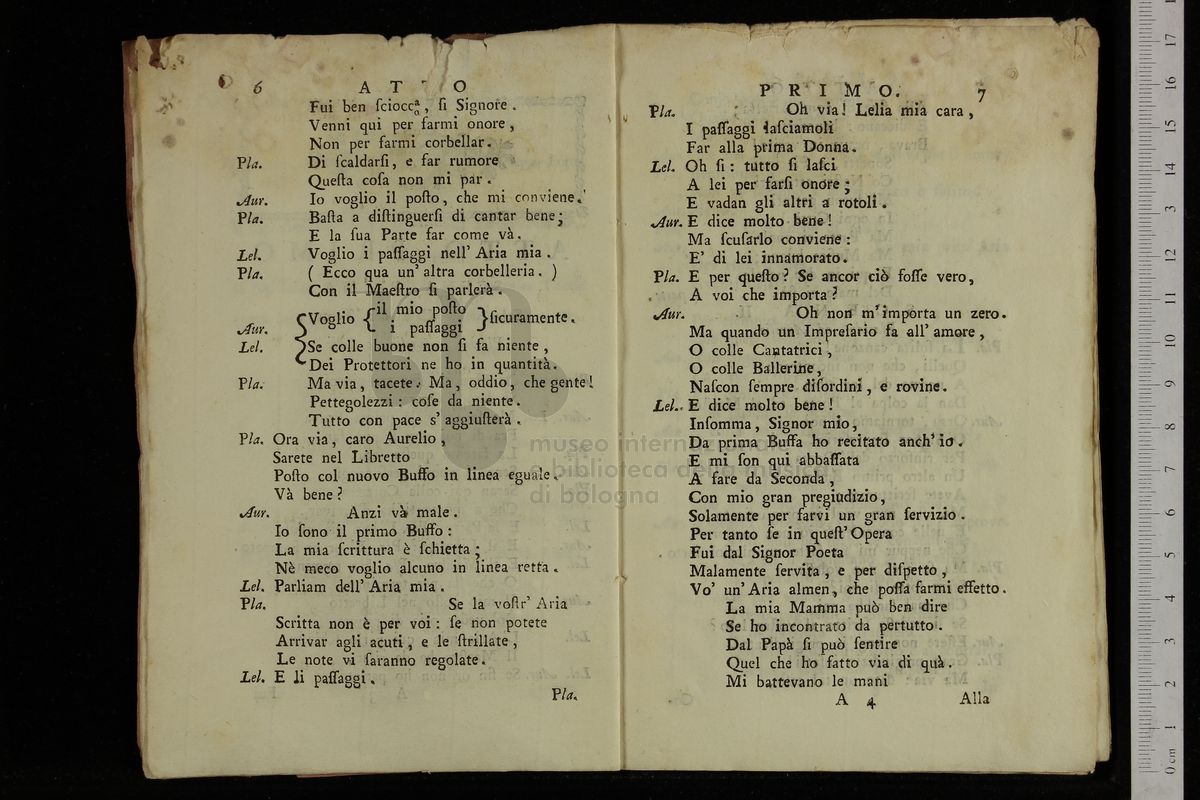 6 ATTO
Fui ben ſciocca, ſi Signore.
Venni qui per farmi onore,
Non per farmi corbellar.
Pla. Di ſcaldarſi, e far rumore
Queſta coſa non mi par.
Aur. Io voglio il poſto, che mi conviene.
Pla. Baſta a diſtinguerſi di cantar bene;
E la ſua Parte far come và.
Lel. Voglio i paſſaggi nell' Aria mia.
Pla. ( Ecco qua un' altra corbelleria. )
Con il Maeſtro ſi parlerà.
Aur. { Voglio { il mio poſto } ſicuramente.
i paſſaggi
Lel. Se colle buone non ſi fa niente,
Dei Protettori ne ho in quantità.
Pla. Ma via, tacete. Ma, oddio, che gente!
Pettegolezzi: coſe da niente.
Tutto con pace s' aggiuſterà.
Pla. Ora via, caro Aurelio,
Sarete nel Libretto
Poſto col nuovo Buffo in linea eguale.
Và bene?
Aur. Anzi và male.
Io ſono il primo Buffo:
La mia ſcrittura è ſchietta;
Nè meco voglio alcuno in linea retta.
Lel. Parliam dell' Aria mia.
Pla. Se la voſtr' Aria
Scritta non è per voi: ſe non potete
Arrivar agli acuti, e le ſtrillate,
Le note vi ſaranno regolate.
Lel. E li paſſaggi.
Pla.
PRIMO. 7
Pla. Oh via! Lelia mia cara,
I paſſaggi laſciamoli
Far alla prima Donna.
Lel. Oh ſi: tutto ſi laſci
A lei per farſi onore;
E vadan gli altri a rotoli.
Aur. E dice molto bene!
Ma ſcuſarlo conviene:
E' di lei innamorato.
Pla. E per queſto? Se ancor ciò foſſe vero,
A voi che importa?
Aur. Oh non m'importa un zero.
Ma quando un Impreſario fa all' amore,
O colle Cantatrici,
O colle Ballerine,
Naſcon ſempre diſordini, e rovine.
Lel. E dice molto bene!
Inſomma, Signor mio,
Da prima Buffa ho recitato anch' io.
E mi ſon qui abbaſſata
A fare da Seconda,
Con mio gran pregiudizio,
Solamente per farvi un gran ſervizio.
Per tanto ſe in queſt' Opera
Fui dal Signor Poeta
Malamente ſervita, e per diſpetto,
Vo' un' Aria almen, che poſſa farmi effetto.
La mia Mamma può ben dire
Se ho incontrato da pertutto.
Dal Papà ſi può ſentire
Quel che ho fatto via di quà.
Mi battevano le mani
A 4 Alla
museo internazionale
biblioteca della musica
di bologna
0 cm 1 2 3 4 5 6 7 8 9 10 11 12 13 14 15 16 17